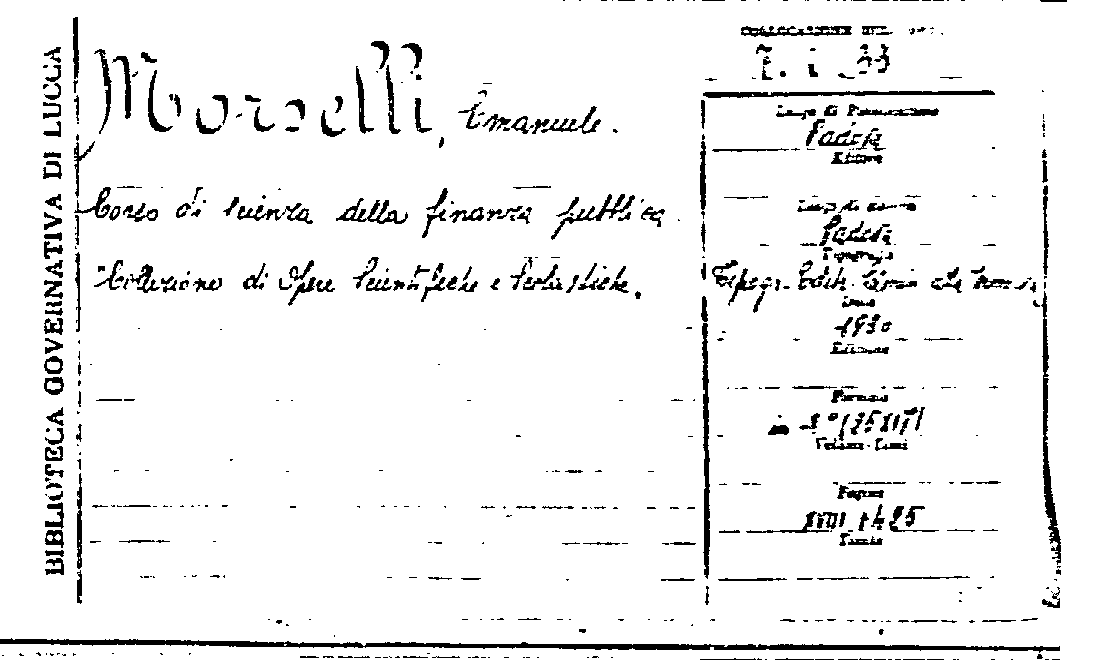 BIBLIOTECA GOVERNATIVA DI LUCCA
Morselli, Emanuele.
Corso di scienza della finanza pubblica.
Collezione di Opere Scientifiche e Scolastiche.
COLLOCAZIONE
Luogo di Pubblicazione
Padova
Editore
Luogo di stampa
Padova
Tipografo
Tipogr. Edit.
Data
1930
Edizione
Formato
in 8° (25x17)
Volume-Tomi
Pagine
XVIII + 425
Tavole